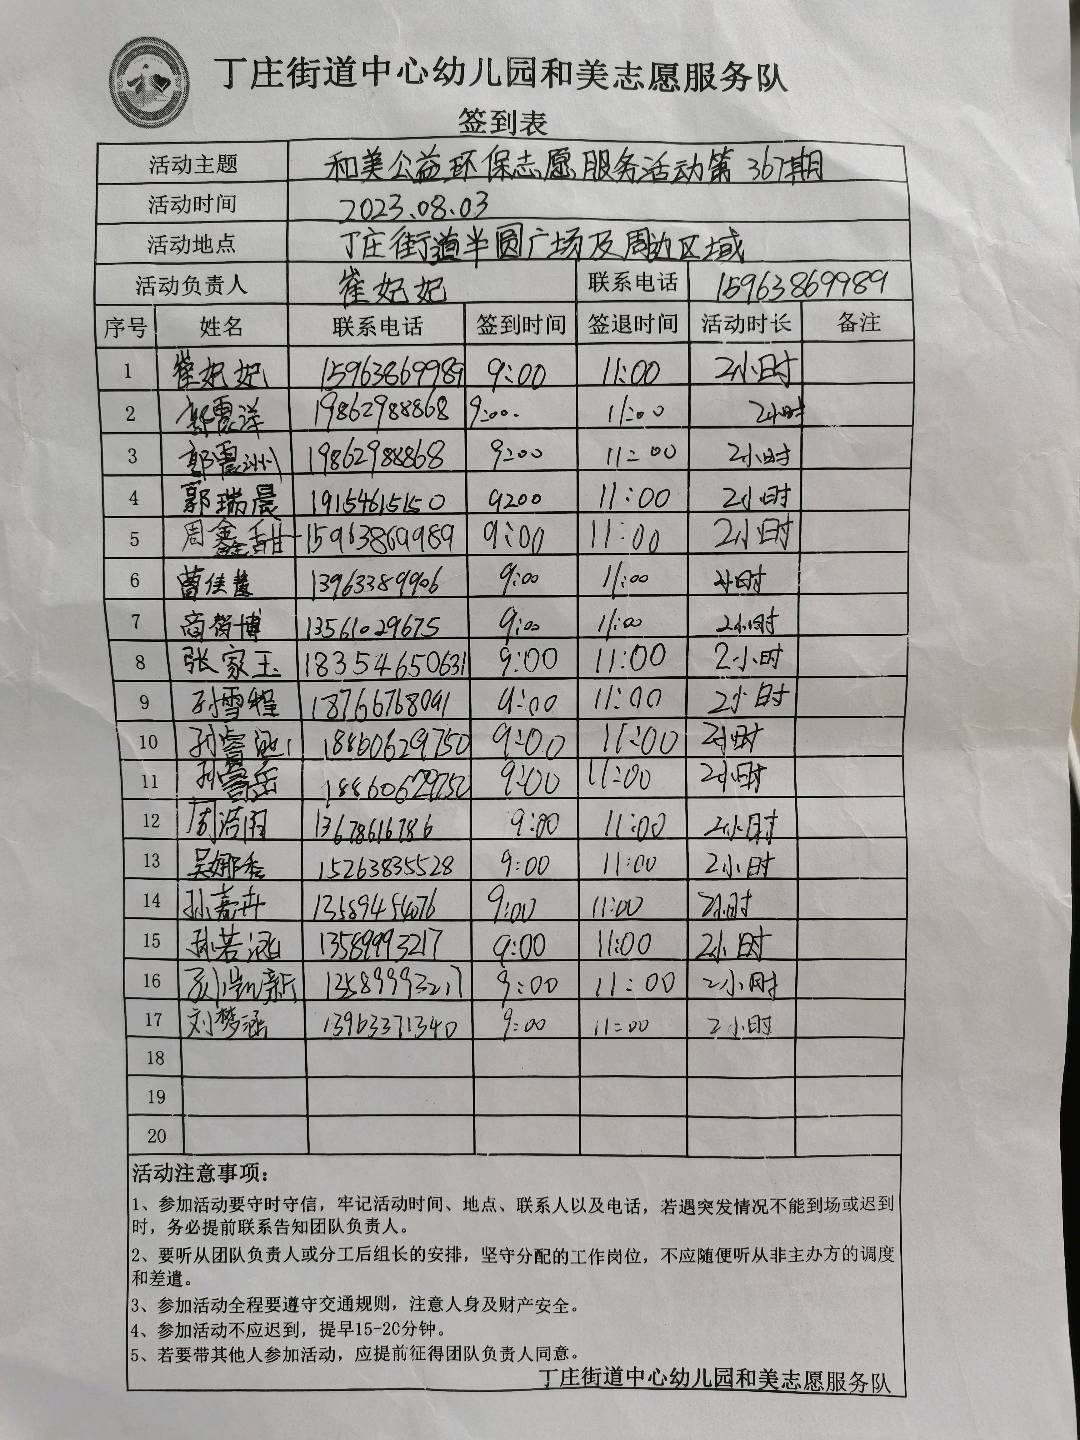 丁庄街道中心幼儿园和美志愿服务队
签到表
活动主题 和美公益环保志愿服务活动第367期
活动时间 2023.08.03
活动地点 丁庄街道半圆广场及周边区域
活动负责人 崔妃妃 联系电话 15963869989
序号 姓名 联系电话 签到时间 签退时间 活动时长 备注
1 崔妃妃 15963869989 9:00 11:00 2小时
2 郭震洋 19862988868 9:00 11:00 2小时
3 郭震洲 19862988868 9:00 11:00 2小时
4 郭瑞晨 19154615150 9:00 11:00 2小时
5 周鑫甜 15963869989 9:00 11:00 2小时
6 曹佳慧 13963389906 9:00 11:00 2小时
7 商智博 13561029675 9:00 11:00 2小时
8 张家玉 18354650631 9:00 11:00 2小时
9 孙雪程 18766768091 9:00 11:00 2小时
10 18860629750 9:00 11:00 2小时
11 18860629750 9:00 11:00 2小时
12 周浩雨 13678616786 9:00 11:00 2小时
13 吴娜香 15263835528 9:00 11:00 2小时
14 孙嘉卉 13589454076 9:00 11:00 2小时
15 孙若涵 13589993217 9:00 11:00 2小时
16 孙凯新 13589993217 9:00 11:00 2小时
17 刘梦涵 13963371340 9:00 11:00 2小时
18
19
20
活动注意事项:
1、参加活动要守时守信，牢记活动时间、地点、联系人以及电话，若遇突发情况不能到场或迟到
时，务必提前联系告知团队负责人。
2、要听从团队负责人或分工后组长的安排，坚守分配的工作岗位，不应随便听从非主办方的调度
和差遣。
3、参加活动全程要遵守交通规则，注意人身及财产安全。
4、参加活动不应迟到，提早15-20分钟。
5、若要带其他人参加活动，应提前征得团队负责人同意。
丁庄街道中心幼儿园和美志愿服务队